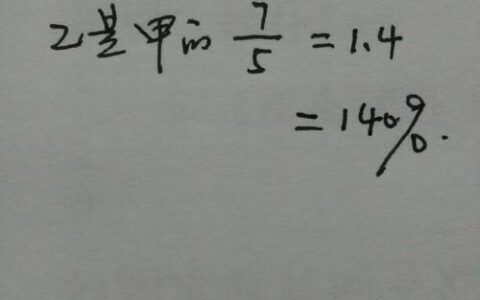 乙是甲的 7/5 = 1.4
= 140%.